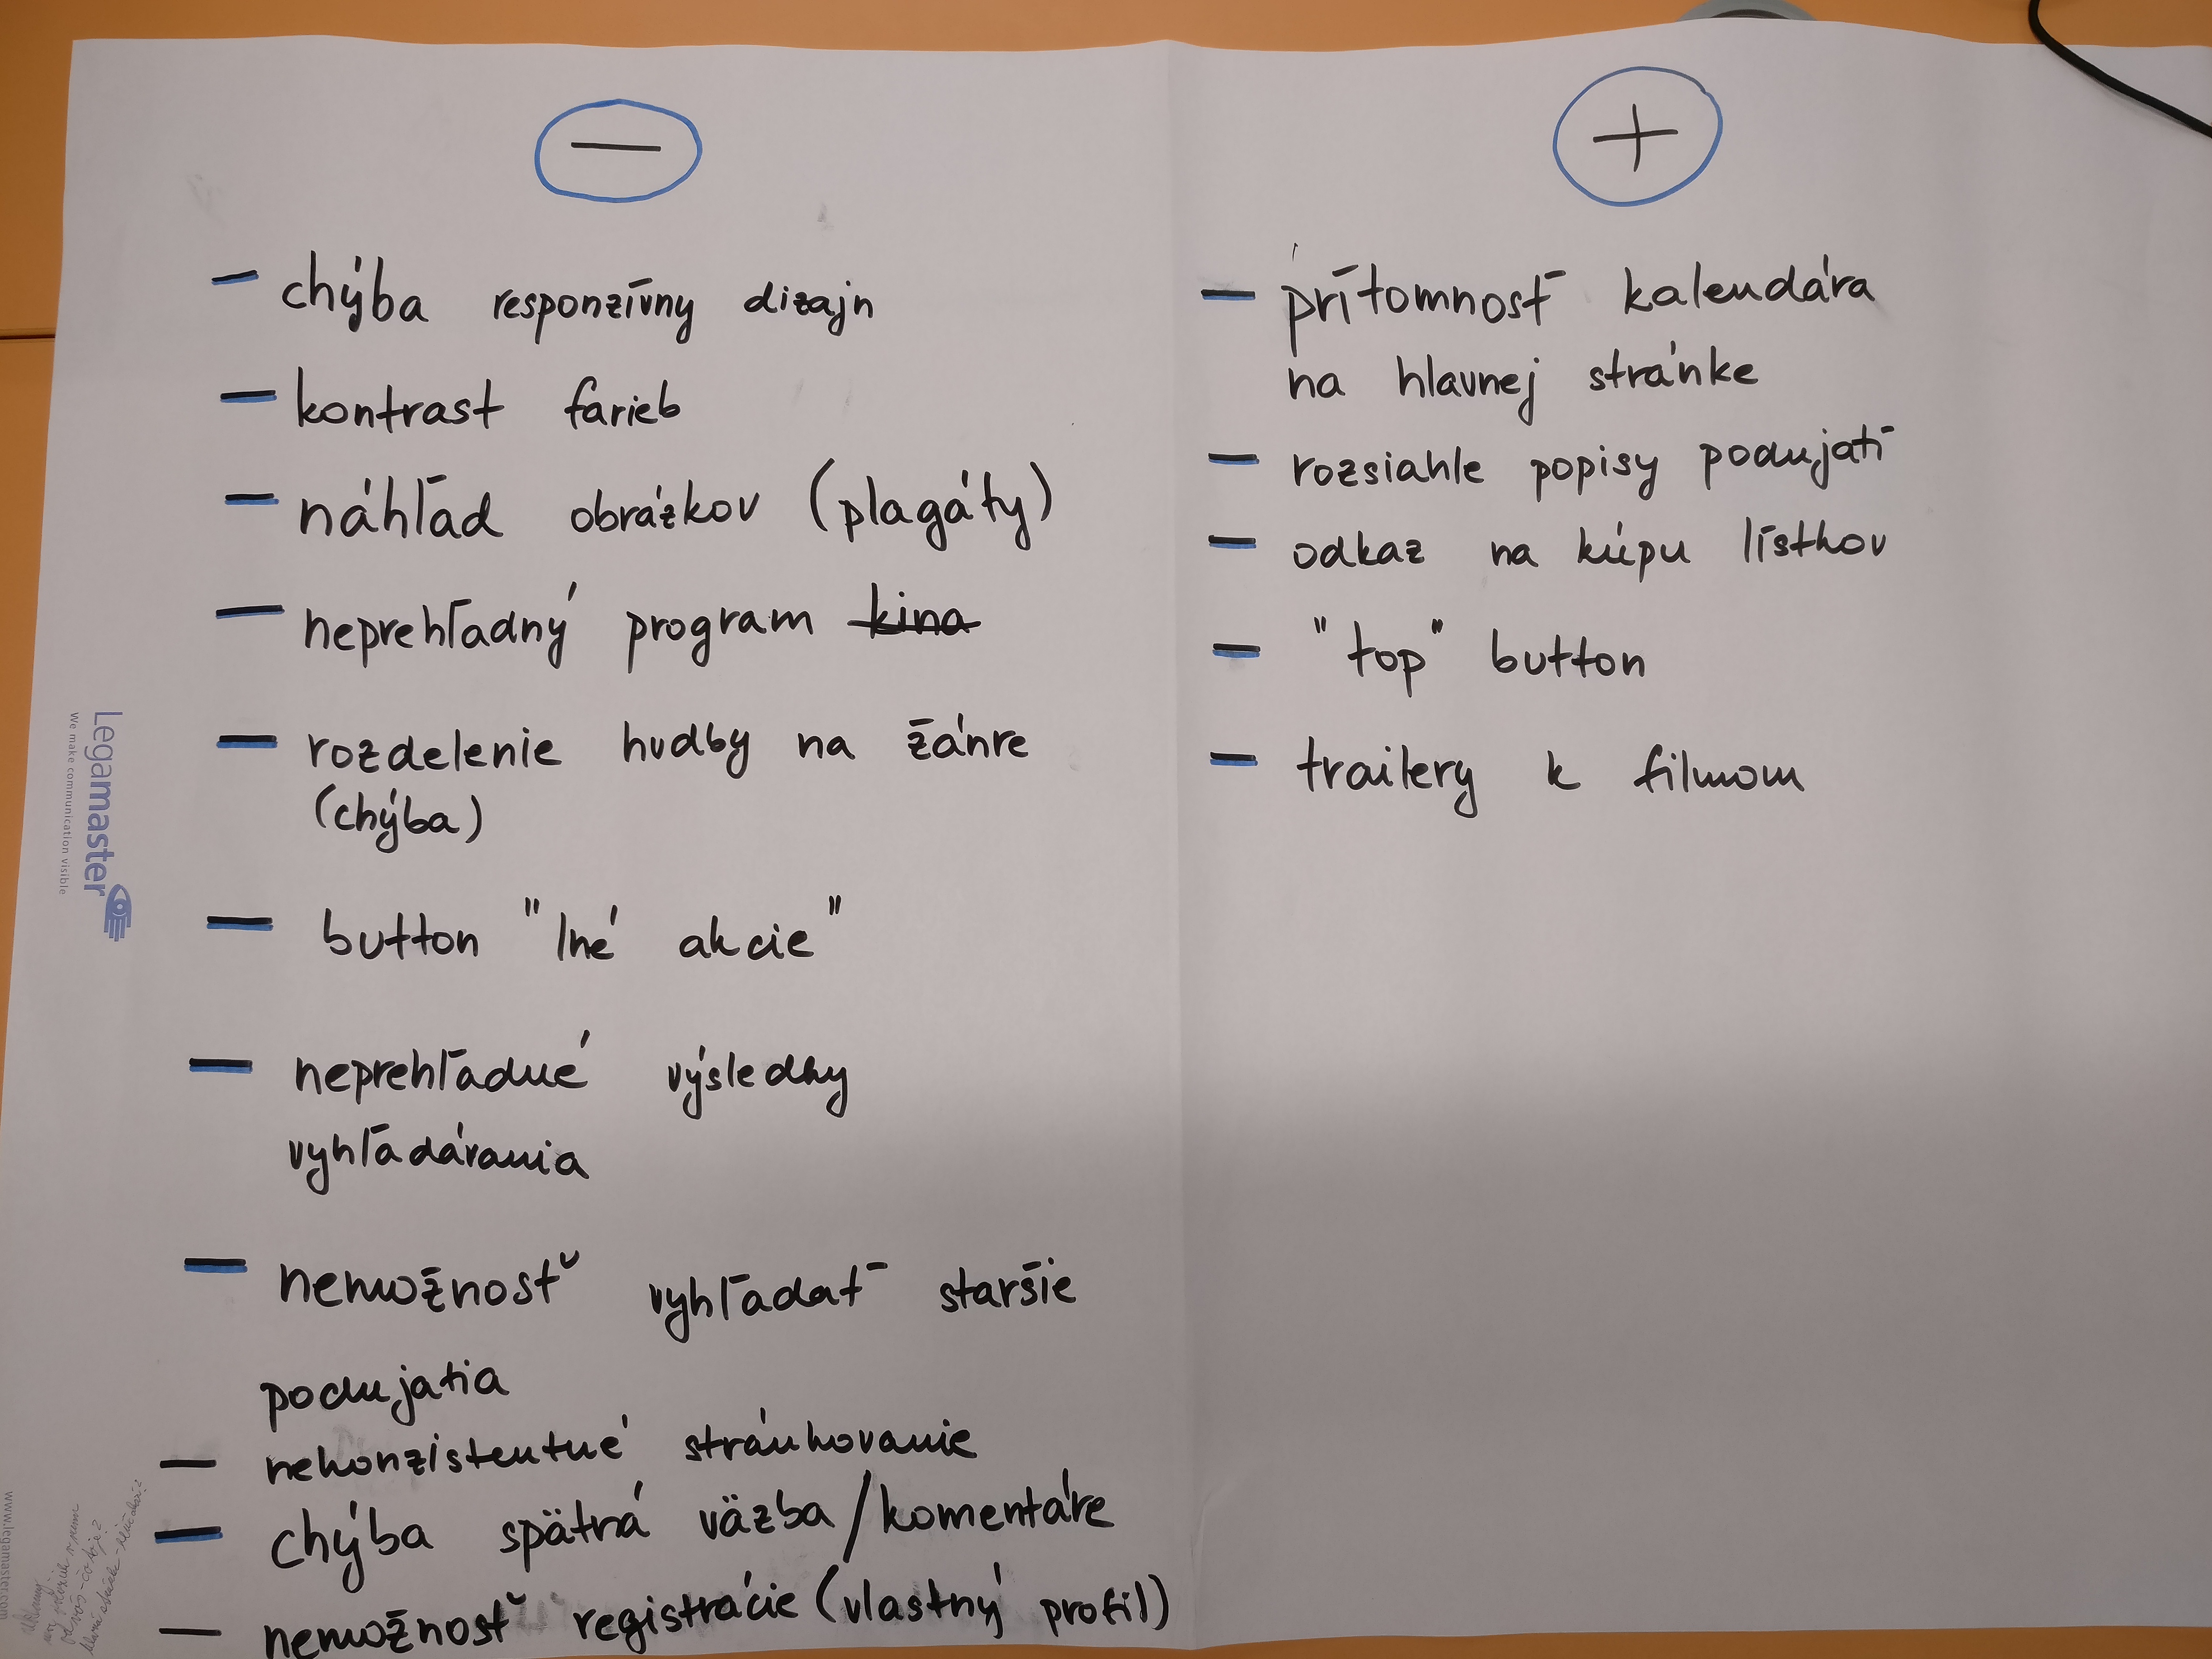 —
— chýba responzívny dizajn
— kontrast farieb
— náhľad obrázkov (plagáty)
— neprehľadný program ~~kina~~
— rozdelenie hudby na žánre
(chýba)
— button "Iné akcie"
— neprehľadné výsledky
vyhľadávania
— nemožnosť vyhľadať staršie
podujatia
— nekonzistentné stránkovanie
— chýba spätná väzba / komentáre
— nemožnosť registrácie (vlastný profil)
+
— prítomnosť kalendára
na hlavnej stránke
— rozsiahle popisy podujatí
— odkaz na kúpu lístkov
— "top" button
— trailery k filmom
Legamaster
We make communication visible
www.legamaster.com